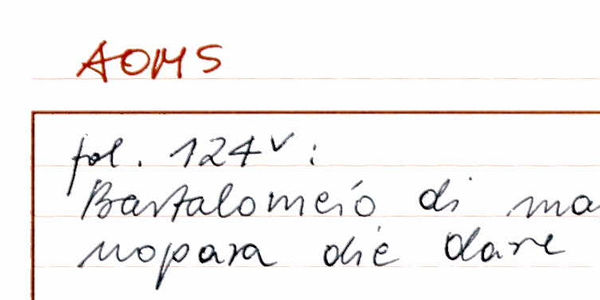 AOMS
fol. 124v:
Bartalomeio di ma
nopara die dare